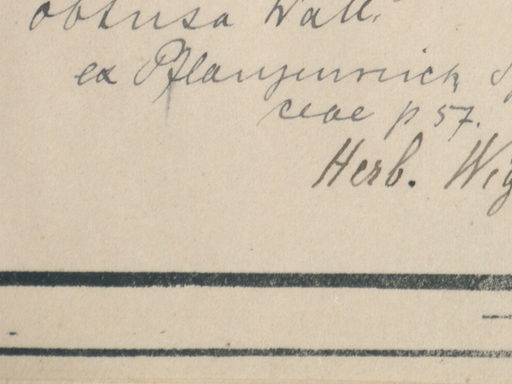 obtusa Wall.
ex Pflanzenreich S
ceae p 57.
Herb. Wig